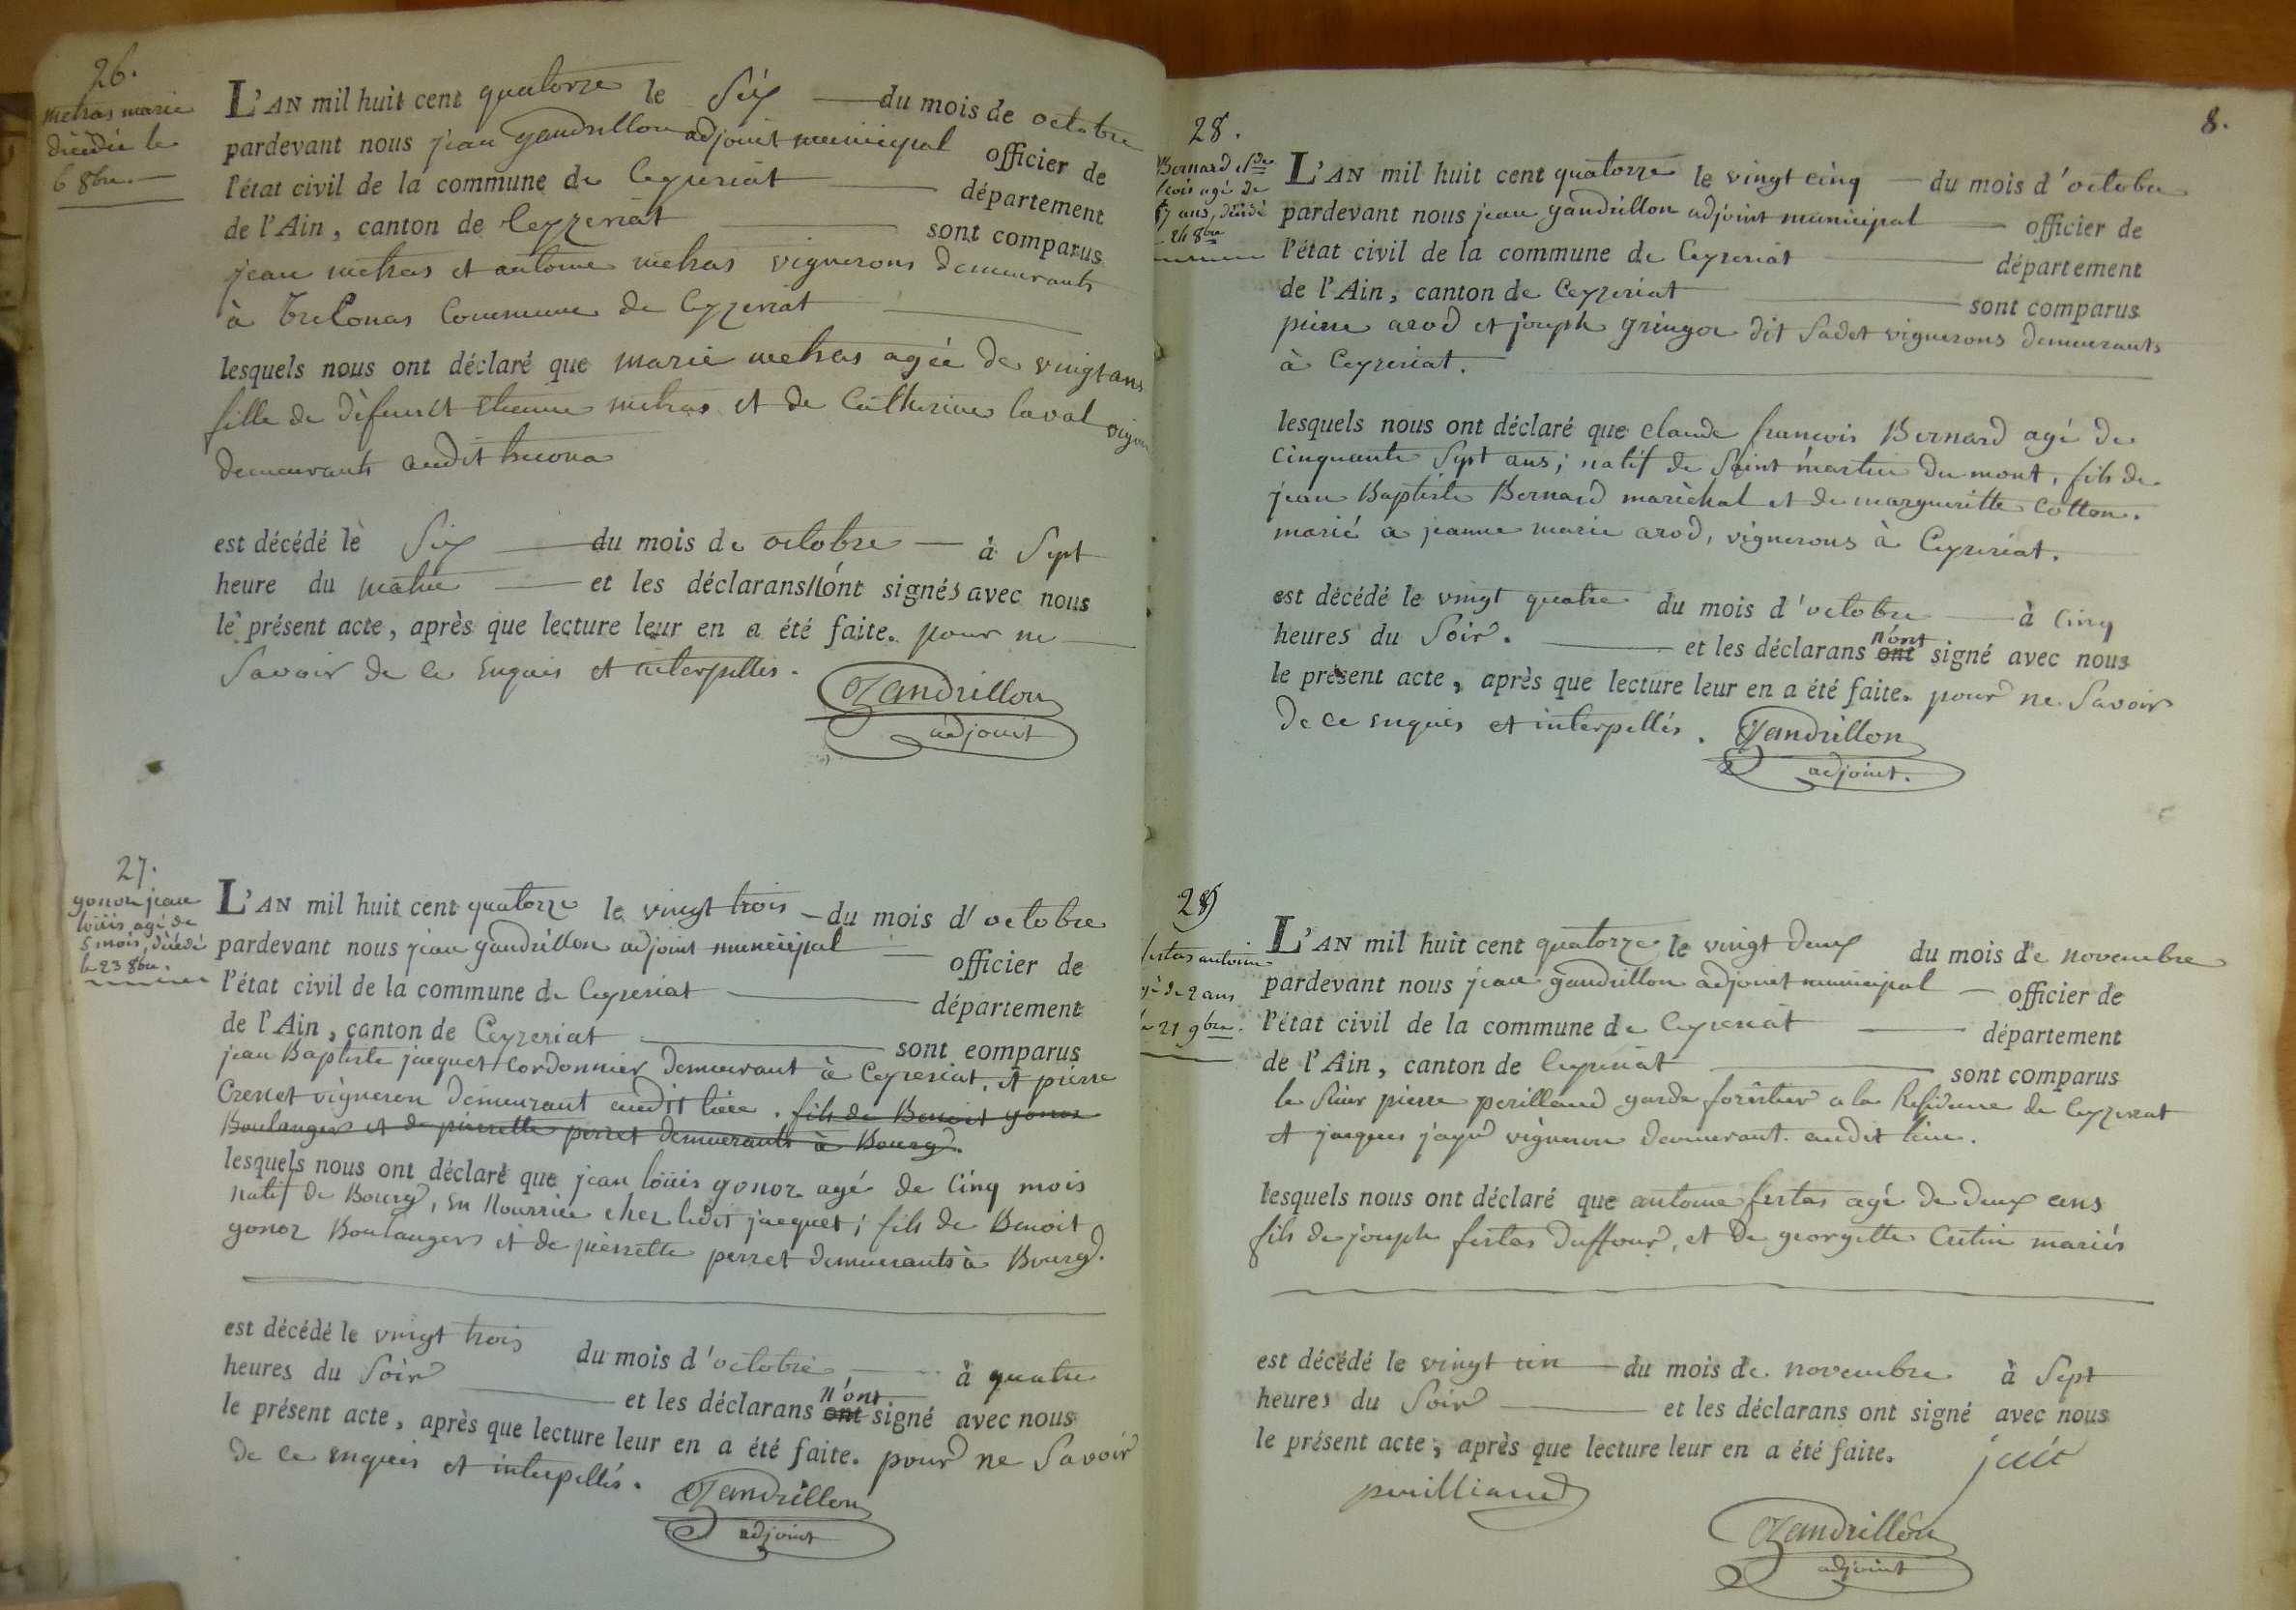 26.
metras marie
décédée le
6 8bre. —
L'AN mil huit cent quatorze le Six — du mois de octobre
pardevant nous jean gandrillon adjoint municipal officier de
l'état civil de la commune de Ceyzeriat — département
de l'Ain, canton de Ceyzeriat — sont comparus
jean metras et antoine metras vignerons demeurants
à treConas Commune de Ceyzeriat
lesquels nous ont déclaré que marie metras agée de vingt ans
fille de défunct etienne metras et de Catherine laval
demeurants audit treconas
est décédé le Six — du mois de octobre — à Sept
heure du matin — et les déclarans n'ont signés avec nous
le présent acte, après que lecture leur en a été faite. pour ne
Savoir de ce enquis et interpellés.
Gandrillon
adjoint
27.
gonoz jean
loüis agé de
5 mois, décédé
le 23 8bre.
L'AN mil huit cent quatorze le vingt trois — du mois d'octobre
pardevant nous jean gandrillon adjoint municipal — officier de
l'état civil de la commune de Ceyzeriat — département
de l'Ain, canton de Ceyzeriat — sont comparus
jean Baptiste jacquet Cordonnier demeurant à Ceyzeriat, et pierre
vigneron demeurant audit lieu. fils de Benoit gonoz
Boulanger et de pierrette perret demeurants à Bourg.
lesquels nous ont déclaré que jean loüis gonoz agé de Cinq mois
natif de Bourg, en Nourrice chez ledit jacquet; fils de Benoit
gonoz Boulanger et de pierrette perret demeurants à Bourg.
est décédé le vingt trois du mois d'octobre — à quatre
heures du Soir — et les déclarans ont n'ont signé avec nous
le présent acte, après que lecture leur en a été faite. pour ne Savoir
de ce enquis et interpellés.
Gandrillon
adjoint
8.
28.
Bernard Cde
cois agé de
57 ans, décédé
24 8bre
L'AN mil huit cent quatorze le vingt cinq — du mois d'octobre
pardevant nous jean gandrillon adjoint municipal — officier de
l'état civil de la commune de Ceyzeriat — département
de l'Ain, canton de Ceyzeriat — sont comparus
pierre arod et joseph gringoz dit Sadet vignerons demeurants
à Ceyzeriat.
lesquels nous ont déclaré que claude francois Bernard agé de
Cinquante Sept ans; natif de Saint martin du mont, fils de
jean Baptiste Bernard maréchal et de margueritte Cotton.
marié a jeanne marie arod, vignerons à Ceyzeriat.
est décédé le vingt quatre du mois d'octobre — à Cinq
heures du Soir. — et les déclarans ont n'ont signé avec nous
le présent acte, après que lecture leur en a été faite. pour ne Savoir
de ce enquis et interpellés.
Gandrillon
adjoint.
29
festas antoine
agé de 2 ans
le 21 9bre.
L'AN mil huit cent quatorze le vingt deux du mois de novembre
pardevant nous jean gandrillon adjoint municipal — officier de
l'état civil de la commune de Ceyzeriat — département
de l'Ain, canton de Ceyzeriat — sont comparus
le Sieur pierre perilland garde forêtier a la Residence de Ceyzeriat
et jacques vigneron demeurant audit lieu.
lesquels nous ont déclaré que antoine festas agé de deux ans
fils de joseph festas duffour, et de georgette Cutin mariés
est décédé le vingt un — du mois de novembre à Sept
heures du Soir — et les déclarans ont signé avec nous
le présent acte, après que lecture leur en a été faite.
perilliand
Gandrillon
adjoint